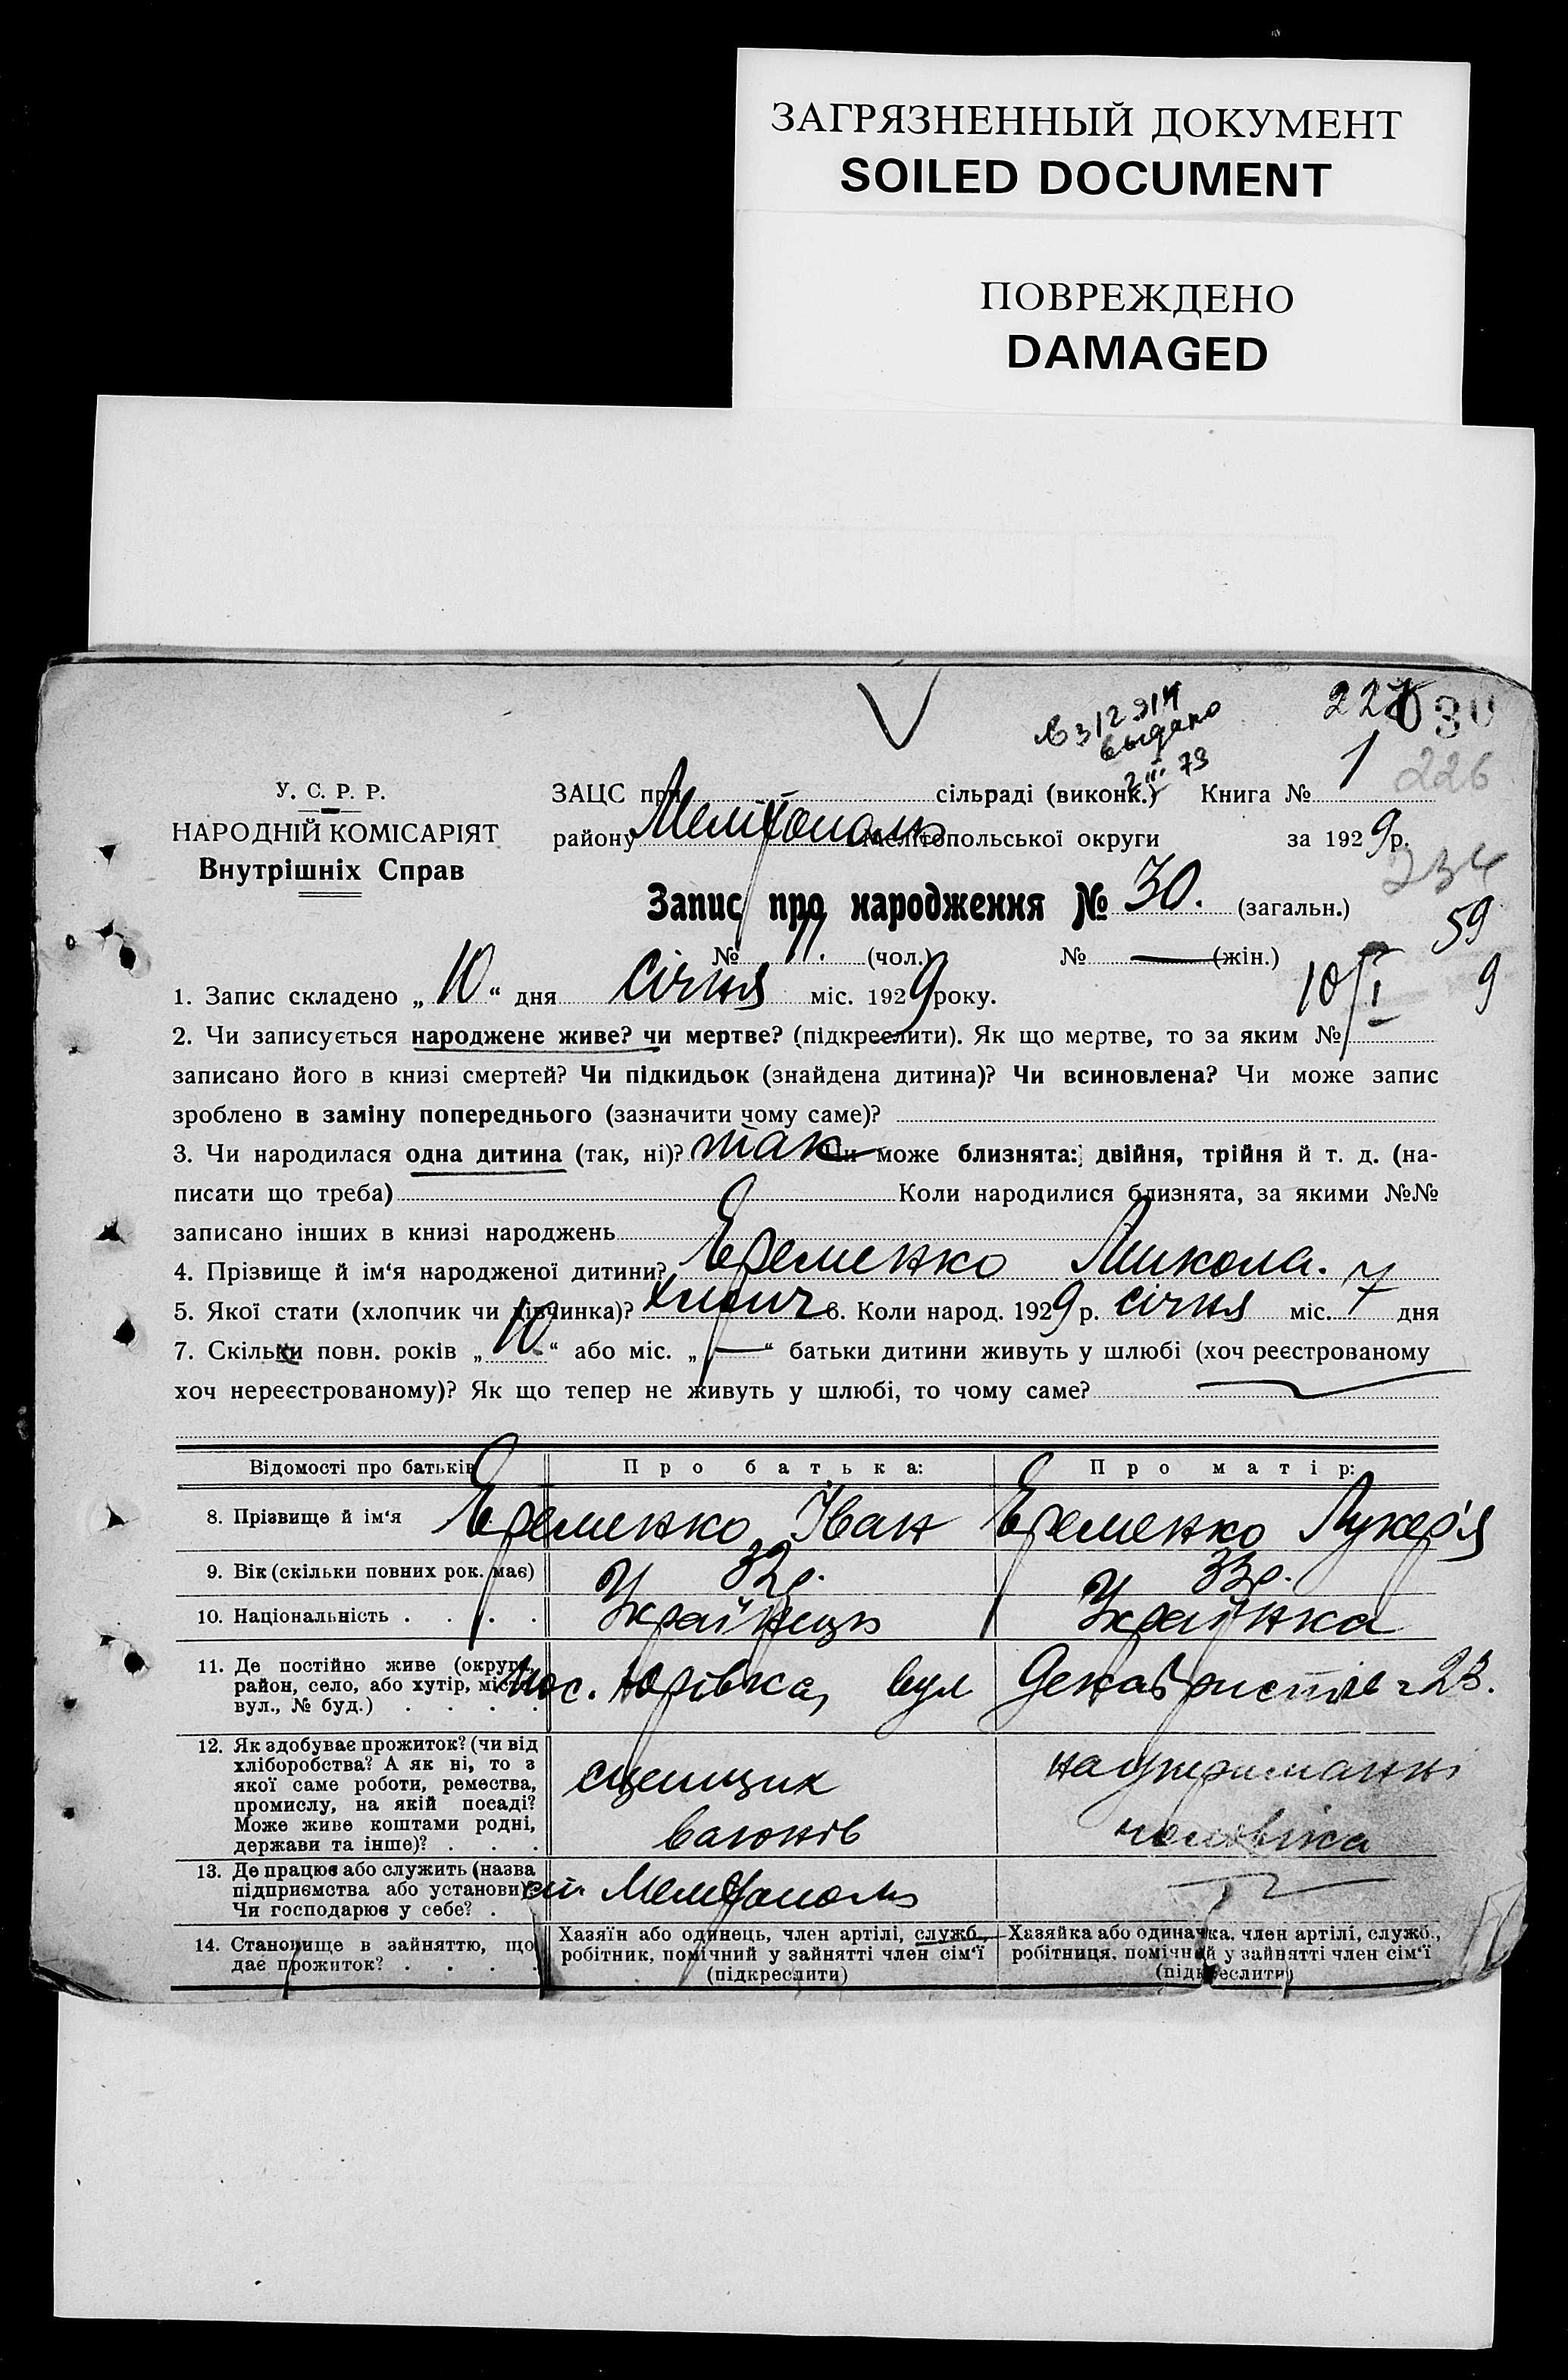 ЗАГРЯЗНЕННЫЙ ДОКУМЕНТ
SOILED DOCUMENT
ПОВРЕЖДЕНО
DAMAGED
выдано
2 III 73
030
226
У. С. Р. Р.
НАРОДНІЙ КОМІСАРІЯТ
Внутрішніх Справ
ЗАЦС при сільраді (виконк.) Книга № 1
району Мелітополь Мелітопольської округи за 1929 р.
234
Запис про народження № 30. (загальн.)
59
№ 11. (чол.) № — (жін.)
9
1. Запис складено „10“ дня січня міс. 1929 року. 10/I
2. Чи записується народжене живе? чи мертве? (підкреслити). Як що мертве, то за яким №
записано його в книзі смертей? Чи підкидьок (знайдена дитина)? Чи всиновлена? Чи може запис
зроблено в заміну попереднього (зазначити чому саме)?
3. Чи народилася одна дитина (так, ні)? так Чи може близнята: двійня, трійня й т. д. (на-
писати що треба) Коли народилися близнята, за якими №№
записано інших в книзі народжень
4. Прізвище й ім‘я народженої дитини? Єременко Микола.
5. Якої стати (хлопчик чи дівчинка)? хлопч 6. Коли народ. 1929 р. січня міс. 7 дня
7. Скільки повн. років „10“ або міс. „—“ батьки дитини живуть у шлюбі (хоч реєстрованому
хоч нереєстрованому)? Як що тепер не живуть у шлюбі, то чому саме?
Відомості про батьків Про батька: Про матір:
8. Прізвище й ім‘я Єременко Іван Єременко Лукер'я
9. Вік (скільки повних рок. має) 32р. 33р.
10. Національність . . . . Українець Українка
11. Де постійно живе (округа,
район, село, або хутір, місто,
вул., № буд.) . . . .
пос. Юрівка, вул Декабристів 23.
12. Як здобуває прожиток? (чи від
хліборобства? А як ні, то з
якої саме роботи, ремества,
промислу, на якій посаді?
Може живе коштами родні,
держави та інше)? . . .
сцепщик
вагонів
на утриманні
чоловіка
13. Де працює або служить (назва
підприємства або установи)?
Чи господарює у себе? .
ст. Мелітополь
14. Становище в зайняттю, що
дає прожиток? . . . .
Хазяїн або одинець, член артілі, служб.,
робітник, помічний у зайнятті член сім‘ї
(підкреслити)
Хазяйка або одиначка, член артілі, служб.,
робітниця, помічний у зайнятті член сім‘ї
(підкреслити)